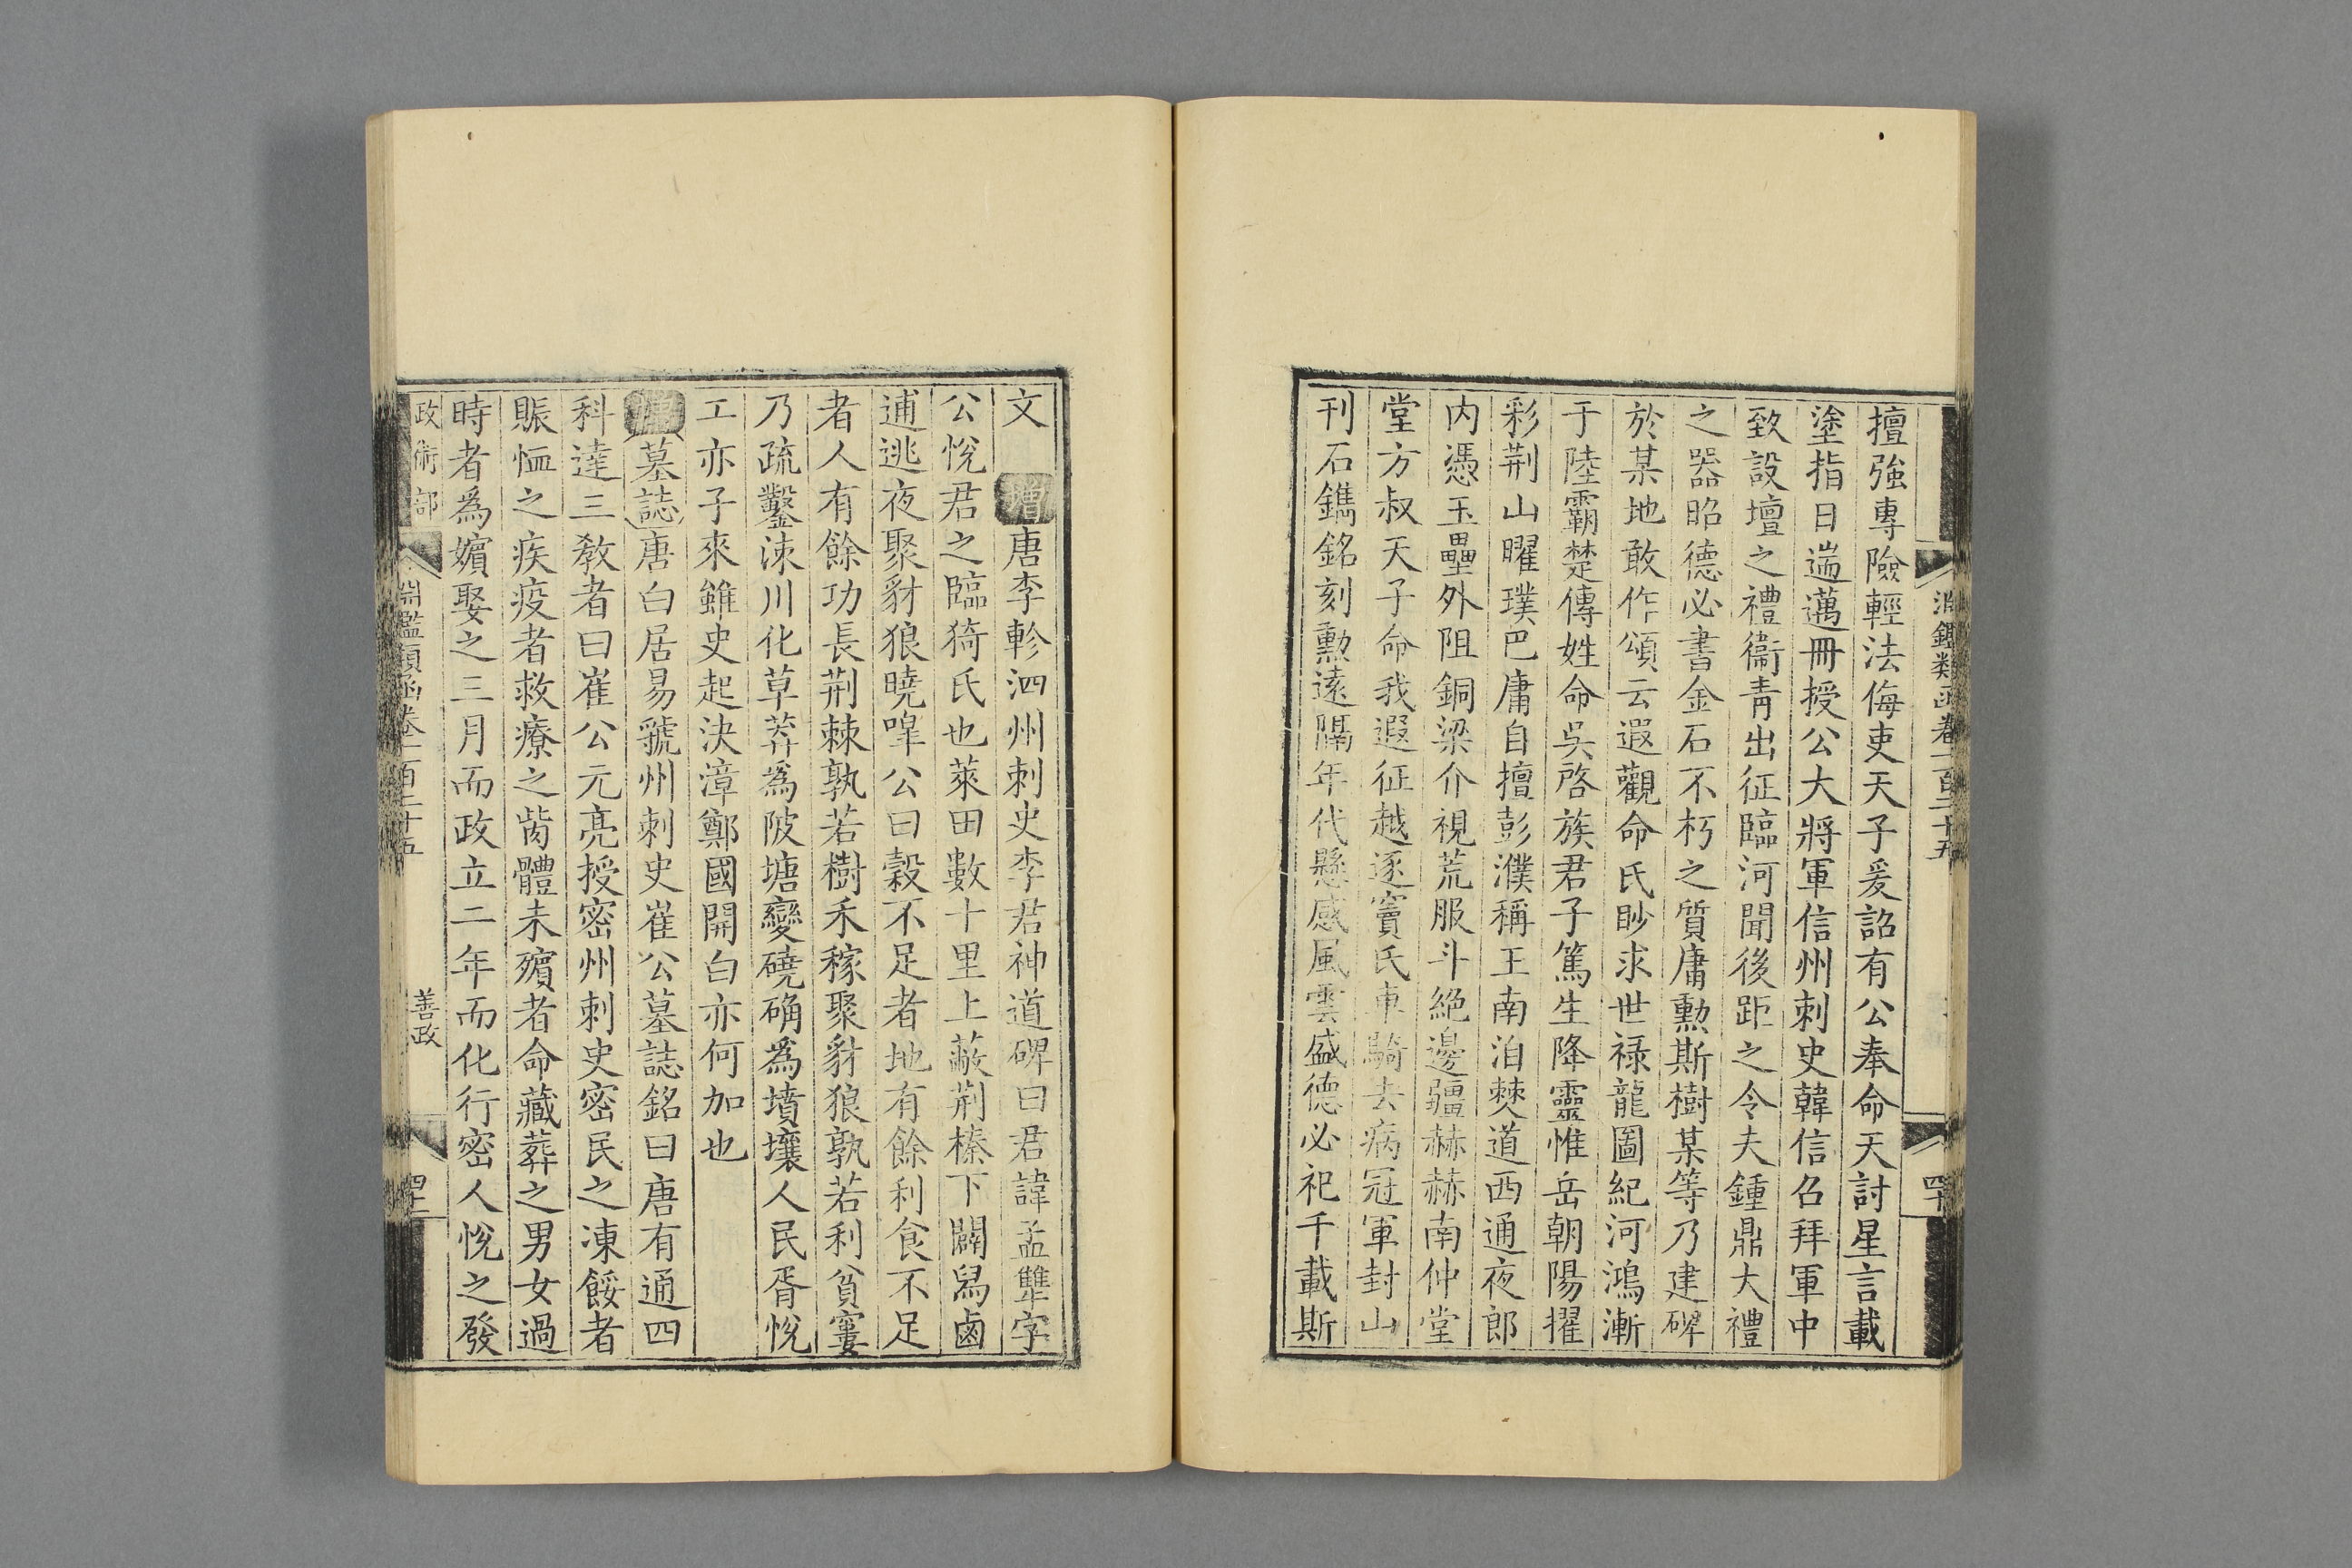 淵鑑類函卷一百二十五
擅強專險輕法侮吏天子爰詔有公奉命天討星言載
塗指日遄邁冊授公大將軍信州刺史韓信召拜軍中
致設壇之禮衞青出征臨河聞後距之令夫鍾鼎大禮
之器昭德必書金石不朽之質庸勲斯樹某等乃建碑
於某地敢作頌云遐觀命氏眇求世禄龍圖紀河鴻漸
于陸霸楚傳姓命吳啓族君子篤生降靈惟岳朝陽擢
彩荆山曜璞巴庸自擅彭濮稱王南泊僰道西通夜郎
内憑玉壘外阻銅梁介視荒服斗絕邊疆赫赫南仲堂
堂方叔天子命我遐征越逐竇氏車騎去病冠軍封山
刊石鐫銘刻勲遠隔年代懸感風雲盛德必祀千載斯
文 增唐李軫泗州刺史李君神道碑曰君諱孟犨字
公悅君之臨猗氏也萊田數十里上蔽荆榛下闢舄鹵
逋逃夜聚豺狼曉嘷公曰穀不足者地有餘利食不足
者人有餘功長荆棘孰若樹禾稼聚豺狼孰若利貧窶
乃疏鑿涑川化草莽爲陂塘變磽确爲墳壤人民胥悅
工亦子來雖史起決漳鄭國開白亦何加也
增墓誌唐白居易虢州刺史崔公墓誌銘曰唐有通四
科達三教者曰崔公元亮授密州刺史密民之凍餒者
賑恤之疾疫者救療之胔體未殯者命藏葬之男女過
時者爲嬪娶之三月而政立二年而化行密人悅之發
政術部 淵鑑類函卷一百二十五 善政